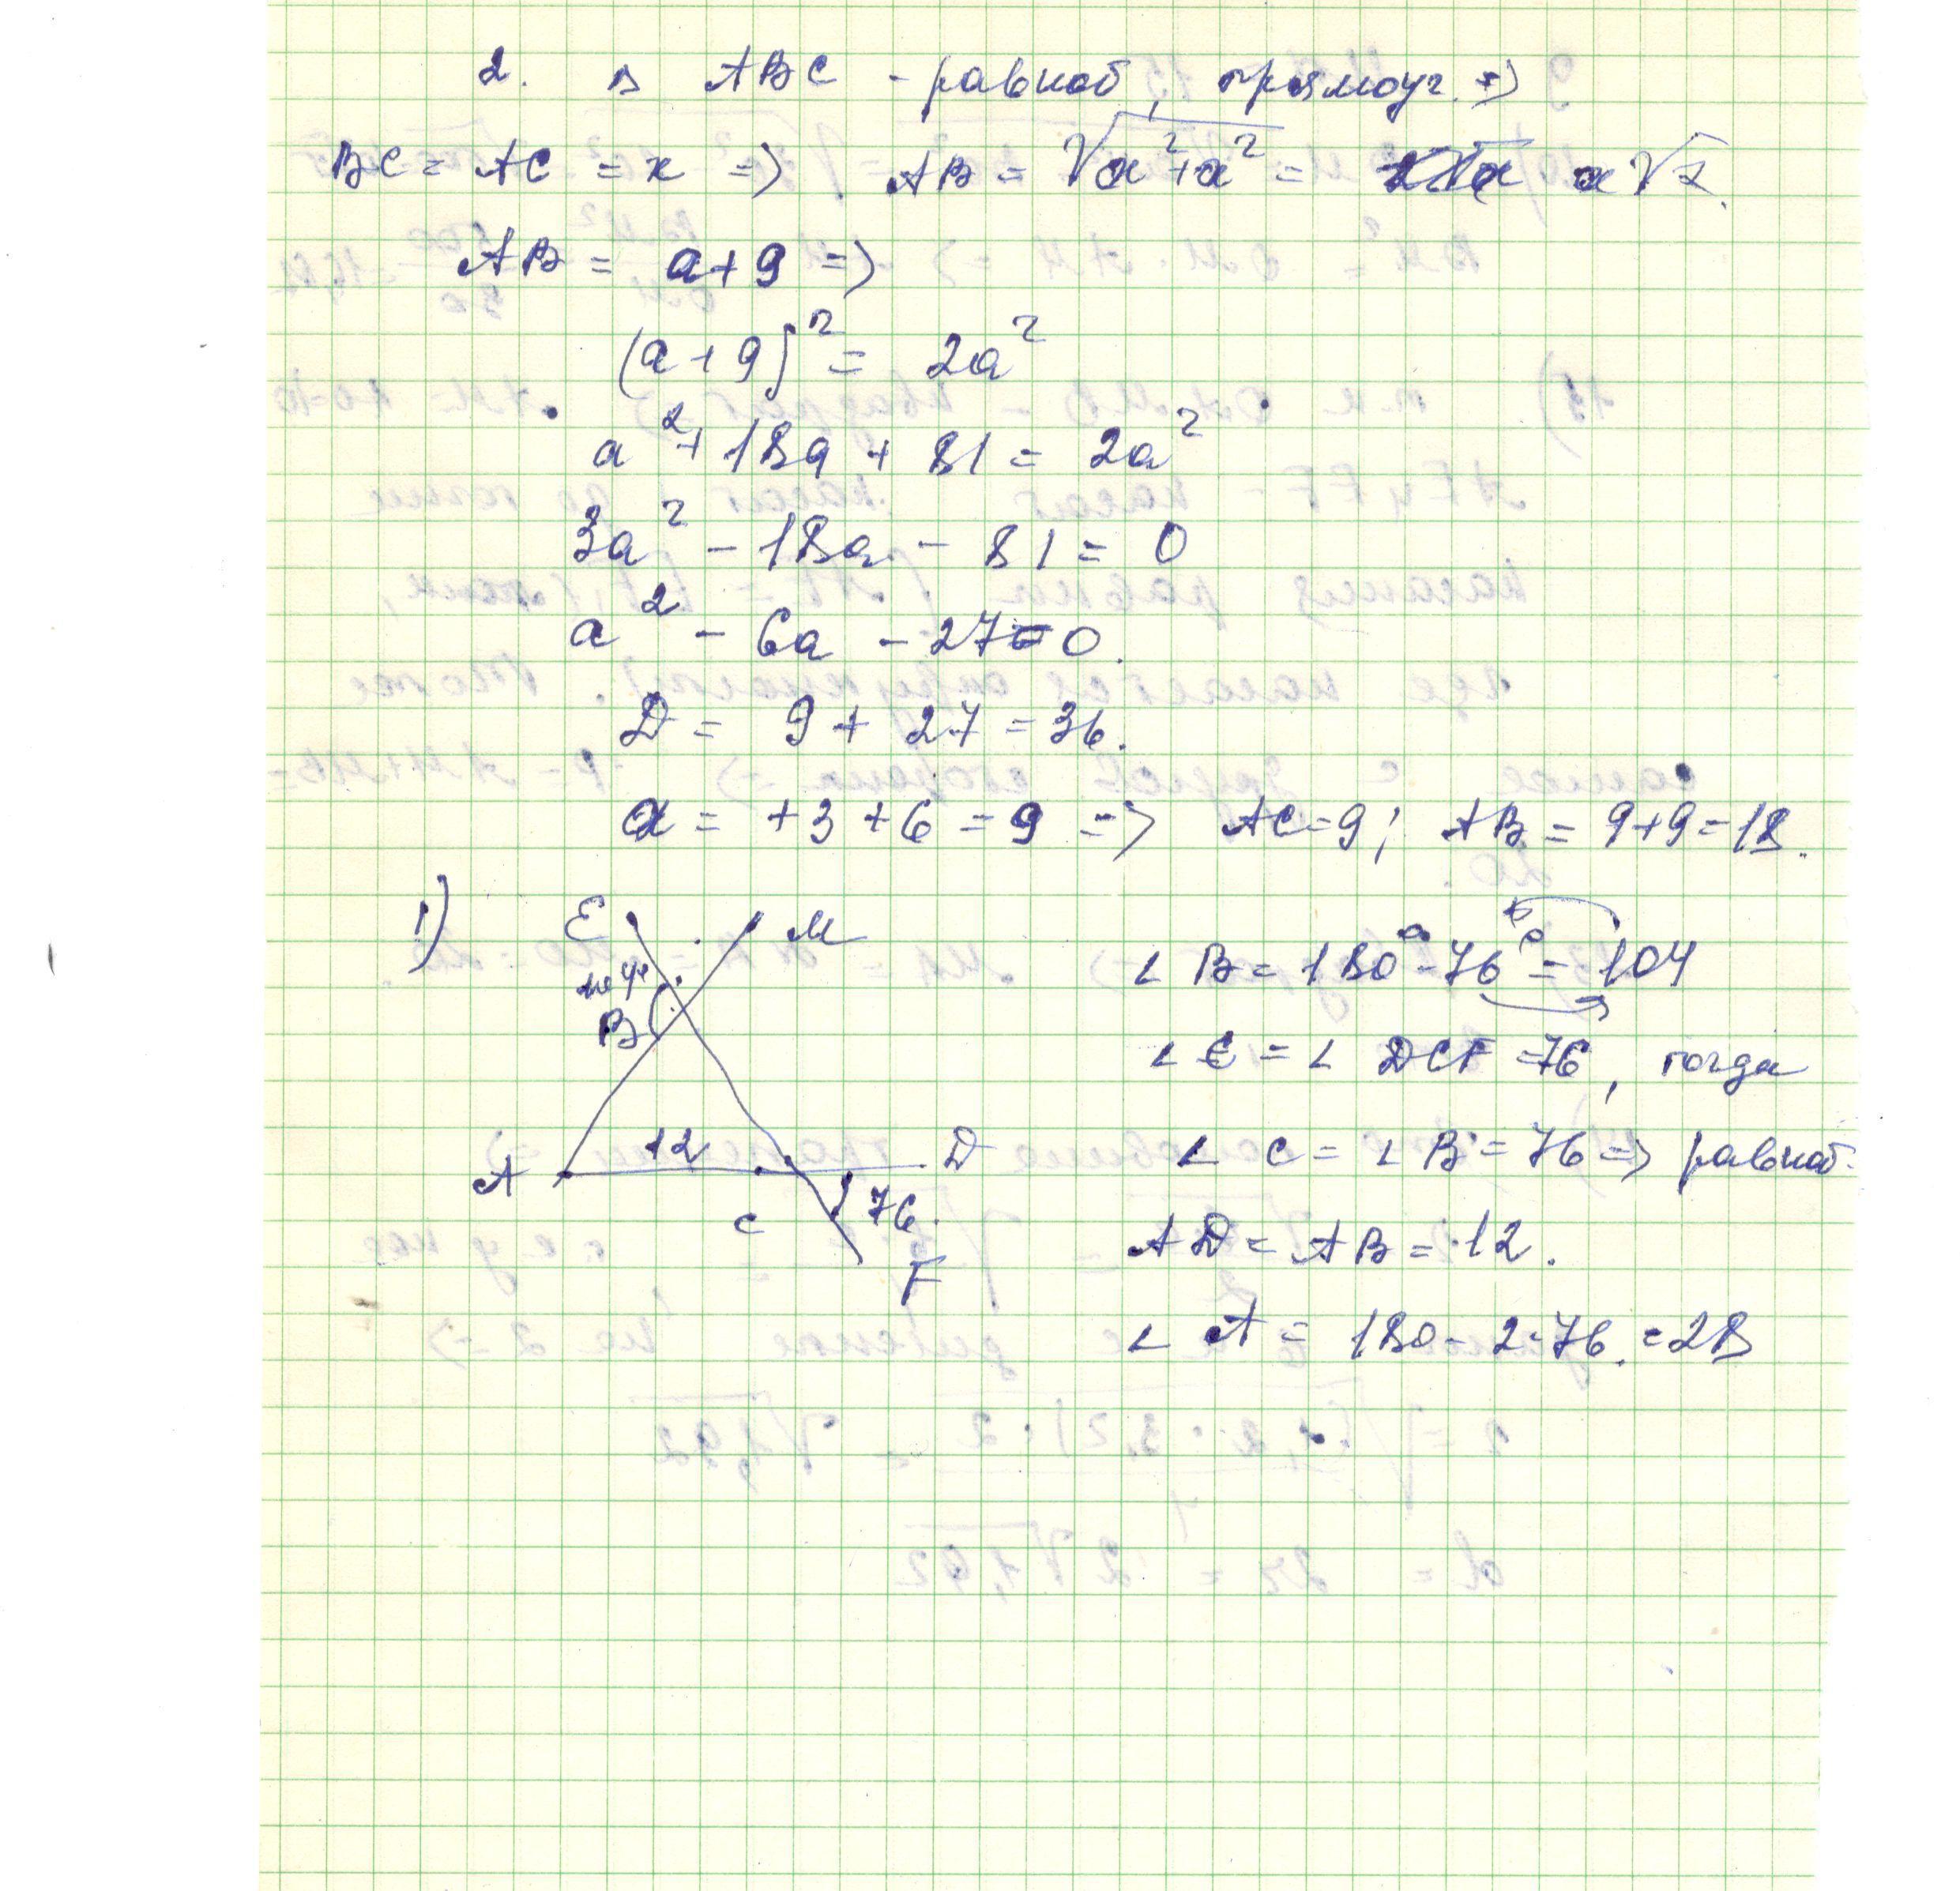 2. △ ABC - равноб, прямоуг. =>
BC = AC = x => AB = √a²+a² = a√2.
AB = a+9 =>
(a+9)² = 2a²
a² + 18a + 81 = 2a²
3a² - 18a - 81 = 0
a² - 6a - 27 = 0.
D = 9 + 27 = 36.
a = +3 + 6 = 9 => AC=9; AB = 9+9=18.
1)
E M
B
A 12 D
C 76.
F
∠ B = 180° - 76° = 104
∠ C = ∠ DCF = 76, тогда
∠ C = ∠ B = 76 => равноб.
AD = AB = 12.
∠ A = 180 - 2·76. = 28